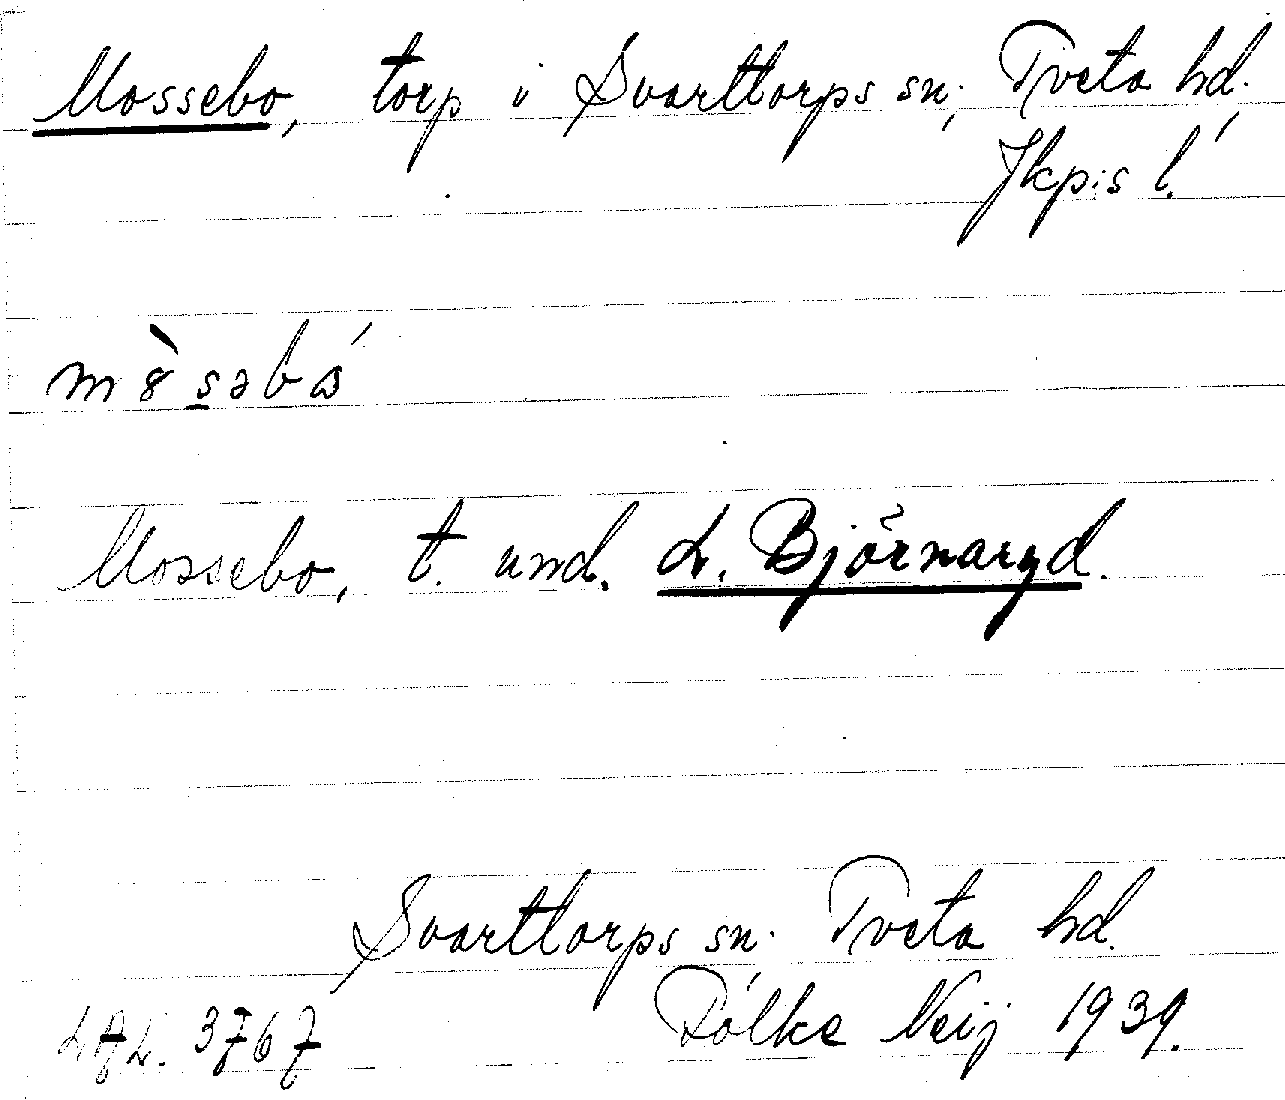 Mossebo, torp i Svarttorps sn; Tveta hd.,
Jkpis l.
Mossebo, t. und. L. Björnaryd.
Svarttorps sn. Tveta hd.
3767 Fólke Neij 1939.